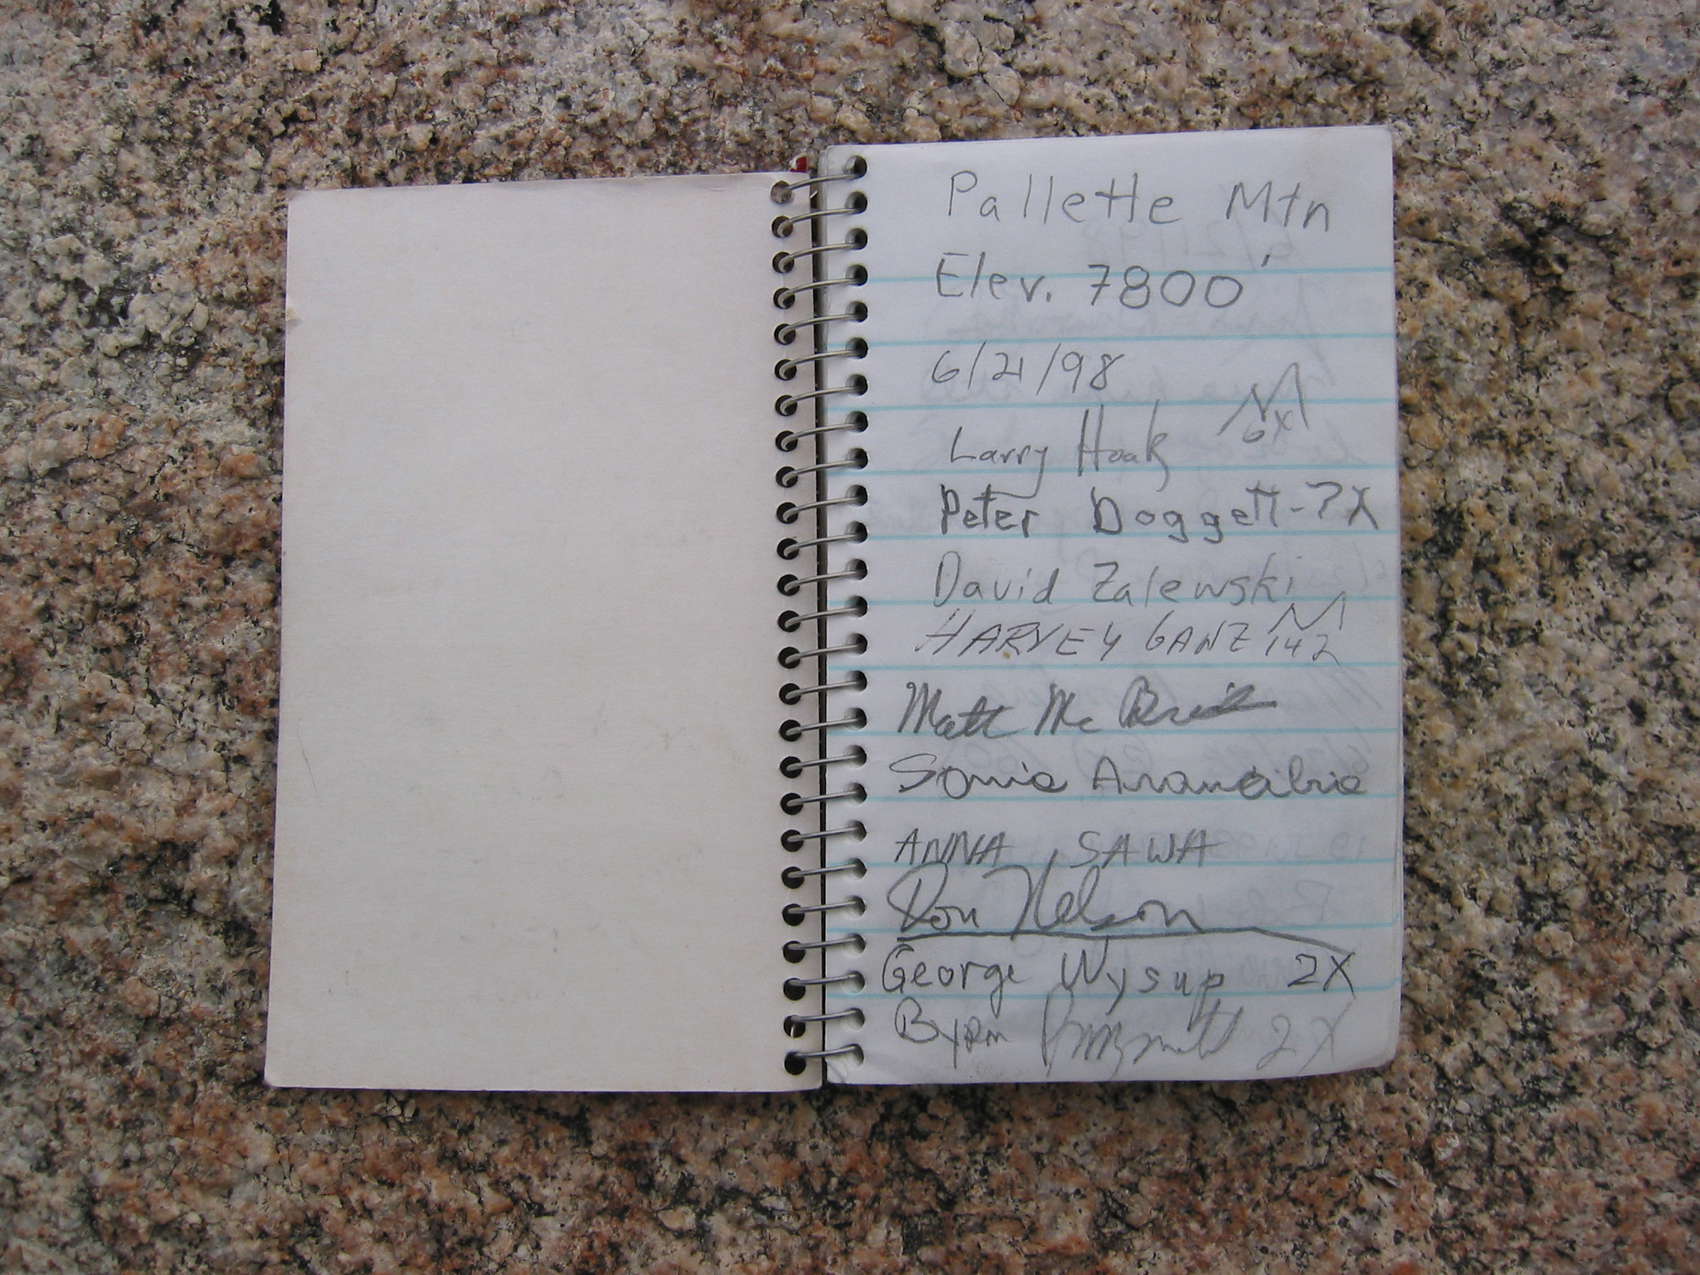 Pallette Mtn
Elev. 7800'
6/21/98
Larry Hoak 6X
Peter Doggett - 7X
David Zalewski
HARVEY GANZ 142
Matt Mc
Sonia Aramabia
ANNA SAWA
Ron Nelson
George Wysup 2X
Byron 2X